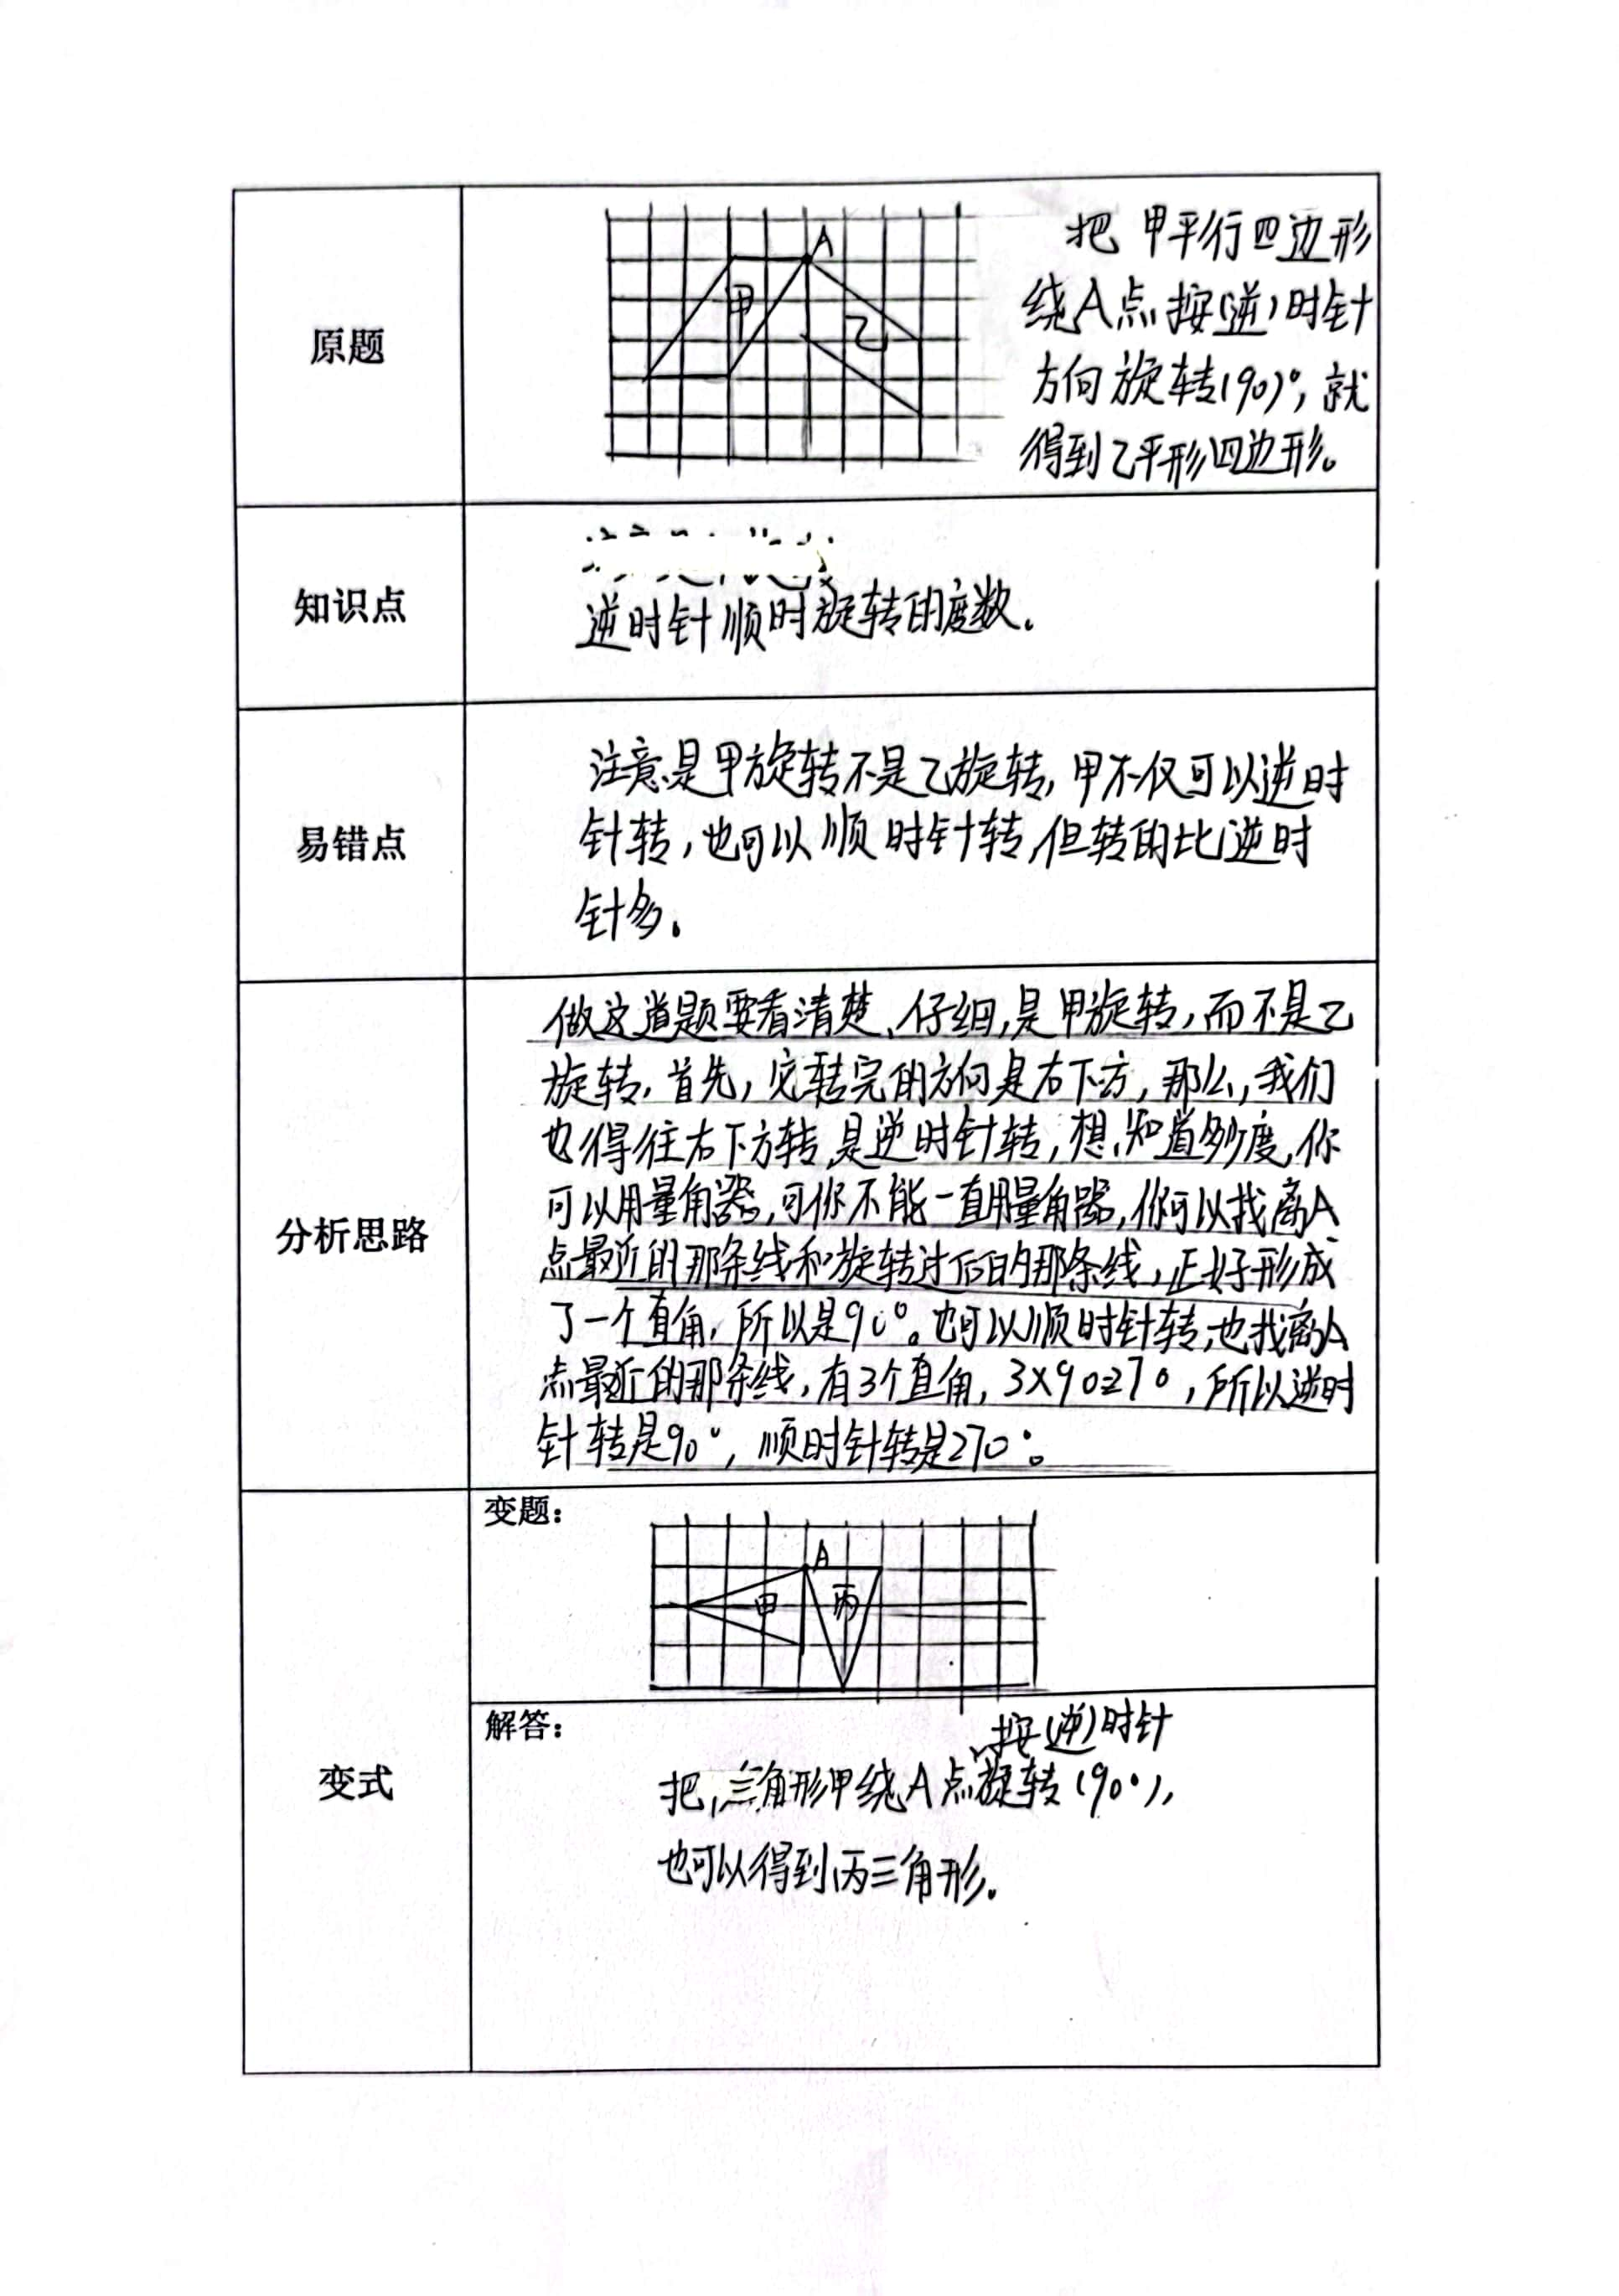 原题
A
甲
乙
把甲平行四边形
绕A点按(逆)时针
方向旋转(90)°,就
得到乙平形四边形。
知识点
逆时针顺时旋转的度数。
易错点
注意是甲旋转不是乙旋转,甲不仅可以逆时
针转,也可以顺时针转,但转的比逆时
针多。
分析思路
做这道题要看清楚、仔细,是甲旋转,而不是乙
旋转,首先,它转完的方向是右下方,那么,我们
也得往右下方转,是逆时针转,想知道多少度,你
可以用量角器,可你不能一直用量角器,你可以找离A
点最近的那条线和旋转过后的那条线,正好形成
了一个直角,所以是90°。也可以顺时针转,也找离A
点最近的那条线,有3个直角,3×90=270,所以逆时
针转是90°,顺时针转是270°。
变式
变题:
A
甲
丙
解答:
按(逆)时针
把三角形甲绕A点旋转(90°),
也可以得到丙三角形。